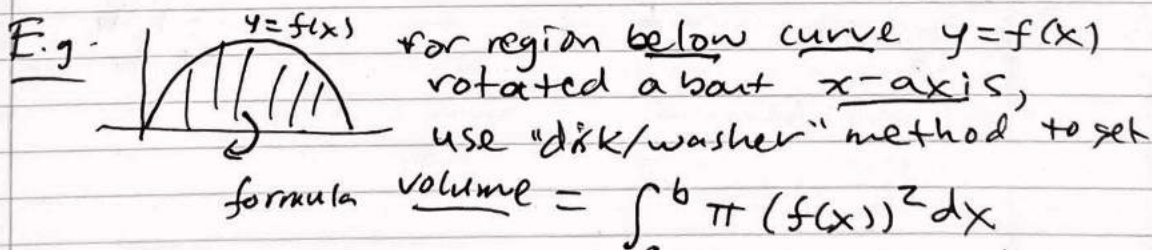 E.g. y=f(x) for region below curve y=f(x)
rotated about x-axis,
use "disk/washer" method to get
formula volume = ∫ᵇ π (f(x))² dx